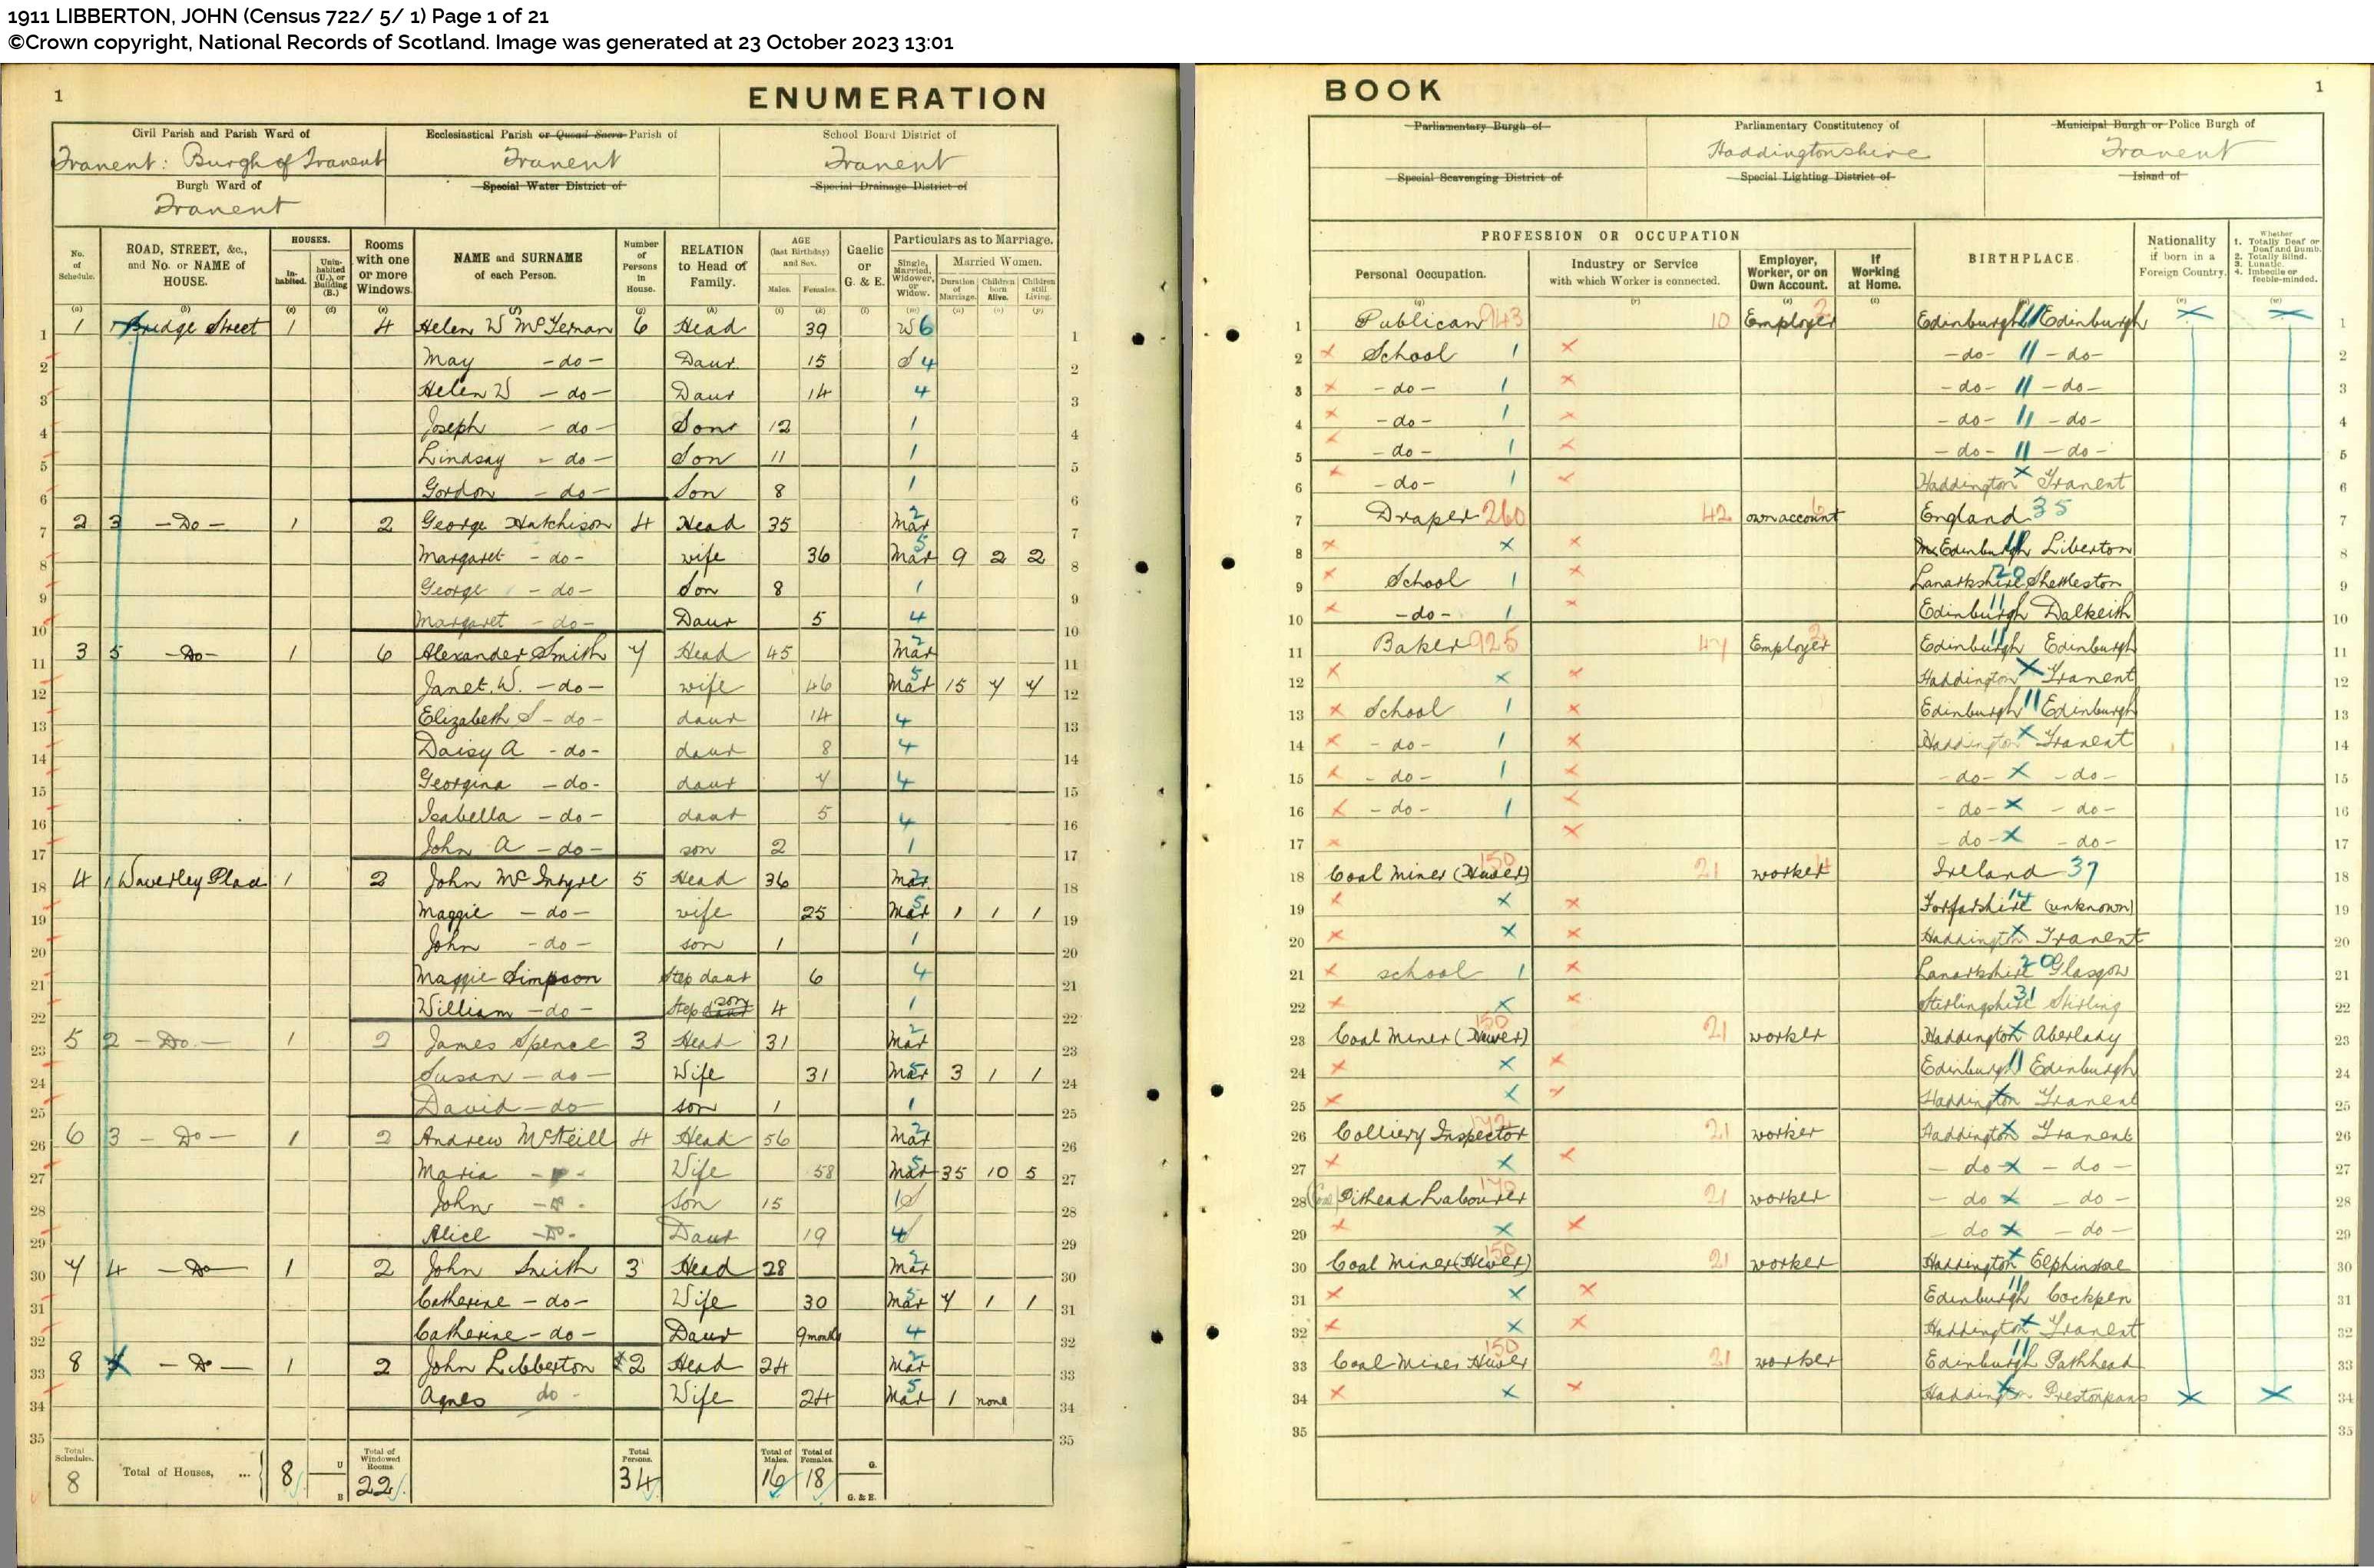 1911 LIBBERTON, JOHN (Census 722/ 5/ 1) Page 1 of 21
©Crown copyright, National Records of Scotland. Image was generated at 23 October 2023 13:01
1 ENUMERATION
Civil Parish and Parish Ward of Ecclesiastical Parish or Quoad Sacra Parish of School Board District of
Tranent: Burgh of Tranent Tranent Tranent
Burgh Ward of Special Water District of Special Drainage District of
Tranent
No. of Schedule. ROAD, STREET, &c., and No. or NAME of HOUSE. HOUSES. Inhabited. Uninhabited (U.), or Building (B.) Rooms with one or more Windows. NAME and SURNAME of each Person. Number of Persons in House. RELATION to Head of Family. AGE (last Birthday) and Sex. Males. Females. Gaelic or G. & E. Particulars as to Marriage. Single, Married, Widower, or Widow. Married Women. Duration of Marriage. Children born Alive. Children still Living.
1 1 1 Bridge Street 1 4 Helen W McTernan 6 Head 39 W 6 1
2 May - do - Daur. 15 S 4 2
3 Helen W - do - Daur 14 4 3
4 Joseph - do - Son 12 1 4
5 Lindsay - do - Son 11 1 5
6 Gordon - do - Son 8 1 6
7 2 3 - Do - 1 2 George Hutchison 4 Head 35 Mar 2 7
8 Margaret - do - wife 36 Mar 5 9 2 2 8
9 George - do - Son 8 1 9
10 Margaret - do - Daur 5 4 10
11 3 5 - Do - 1 6 Alexander Smith 7 Head 45 Mar 2 11
12 Janet. W. - do - wife 46 Mar 5 15 7 7 12
13 Elizabeth S - do - daur 14 4 13
14 Daisy A - do - daur 8 4 14
15 Georgina - do - daur 7 4 15
16 Isabella - do - daur 5 4 16
17 John A - do - son 2 1 17
18 4 1 Waverley Place 1 2 John McIntyre 5 Head 36 Mar 2 18
19 Maggie - do - wife 25 Mar 5 1 1 1 19
20 John - do - son 1 1 20
21 Maggie Simpson Step daur 6 4 21
22 William - do - Step daur son 4 1 22
23 5 2 - Do. - 1 2 James Spence 3 Head 31 Mar 2 23
24 Susan - do - Wife 31 Mar 5 3 1 1 24
25 David - do - son 1 1 25
26 6 3 - Do - 1 2 Andrew McNeill 4 Head 56 Mar 2 26
27 Maria Wife 58 Mar 5 35 10 5 27
28 John son 15 1 S 28
29 Alice - Do - Daur 19 4 29
30 7 4 - Do 1 2 John Smith 3 Head 28 Mar 2 30
31 Catherine - do - Wife 30 Mar 5 7 1 1 31
32 Catherine - do - Daur 9 months 4 32
33 8 - Do - 1 2 John Libberton 2 Head 24 Mar 2 33
34 Agnes do - Wife 24 Mar 5 1 none 34
35 35
Total Schedules. 8 Total of Houses, ... 8 U B Total of Windowed Rooms 22 Total Persons. 34 Total of Males. 16 Total of Females. 18 G. G. & E.
BOOK 1
Parliamentary Burgh of Parliamentary Constitutency of Municipal Burgh or Police Burgh of
Haddingtonshire Tranent
Special Scavenging District of Special Lighting District of Island of
PROFESSION OR OCCUPATION Personal Occupation. Industry or Service with which Worker is connected. Employer, Worker, or on Own Account. If Working at Home. BIRTHPLACE. Nationality if born in a Foreign Country. Whether 1. Totally Deaf or Deaf and Dumb. 2. Totally Blind. 3. Lunatic. 4. Imbecile or feeble-minded.
1 Publican 943 10 Employer 2 Edinburgh 11 Edinburgh 1
2 School 1 - do - 11 - do - 2
3 - do - 1 - do - 11 - do - 3
4 - do - 1 - do - 11 - do - 4
5 - do - 1 - do - 11 - do - 5
6 - do - 1 Haddington Tranent 6
7 Draper 260 42 own account 6 England 35 7
8 Edinburgh 11 Liberton 8
9 School 1 Lanarkshire 20 Shettleston 9
10 - do - 1 Edinburgh 11 Dalkeith 10
11 Baker 925 47 Employer 2 Edinburgh 11 Edinburgh 11
12 Haddington Tranent 12
13 School 1 Edinburgh 11 Edinburgh 13
14 - do - 1 Haddington Tranent 14
15 - do - 1 - do - - do - 15
16 - do - 1 - do - - do - 16
17 - do - - do - 17
18 Coal Miner (Hewer) 150 21 worker 4 Ireland 37 18
19 Forfarshire 14 (unknown) 19
20 Haddington Tranent 20
21 school 1 Lanarkshire 20 Glasgow 21
22 Stirlingshire 31 Stirling 22
23 Coal Miner (Hewer) 150 21 worker Haddington Aberlady 23
24 Edinburgh 11 Edinburgh 24
25 Haddington Tranent 25
26 Colliery Inspector 21 worker Haddington Tranent 26
27 - do - do - 27
28 Pithead Labourer 170 21 worker - do do - 28
29 do - do - 29
30 Coal Miner (Hewer) 150 21 worker Haddington Elphinstone 30
31 Edinburgh 11 Cockpen 31
32 Haddington Tranent 32
33 Coal Miner Hewer 150 21 worker Edinburgh 11 Pathhead 33
34 Haddington Prestonpans 34
35 35